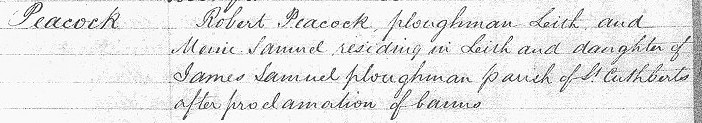 Peacock Robert Peacock, ploughman Leith and
Menie Samuel residing in Leith and daughter of
James Samuel ploughman parish of St. Cuthberts
after proclamation of banns